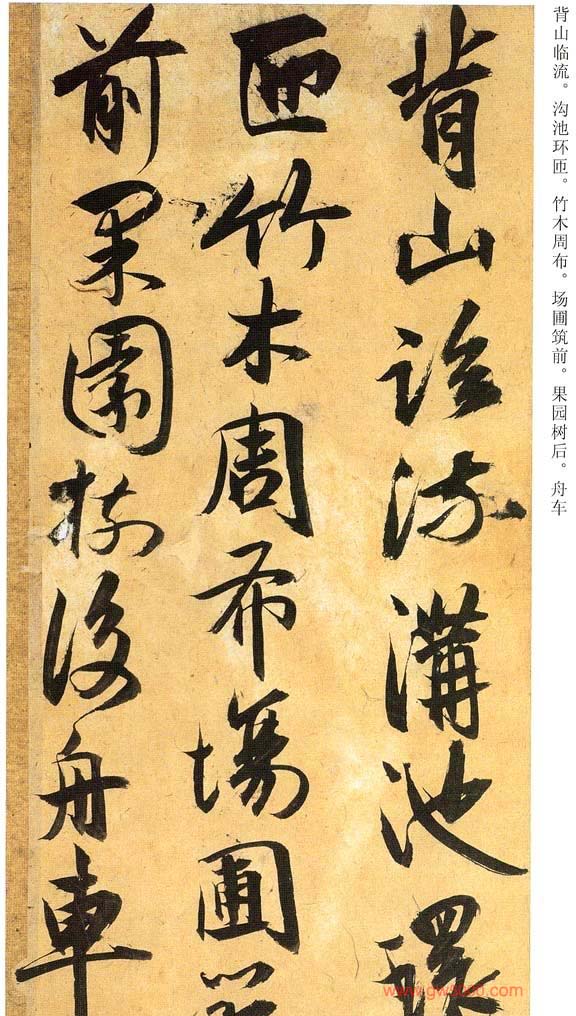 背山临流。沟池环匝。竹木周布。场圃筑前。果园树后。舟车
背山臨流溝池環
匝竹木周布場圃築
前果園樹後舟車
www.gw3000.com